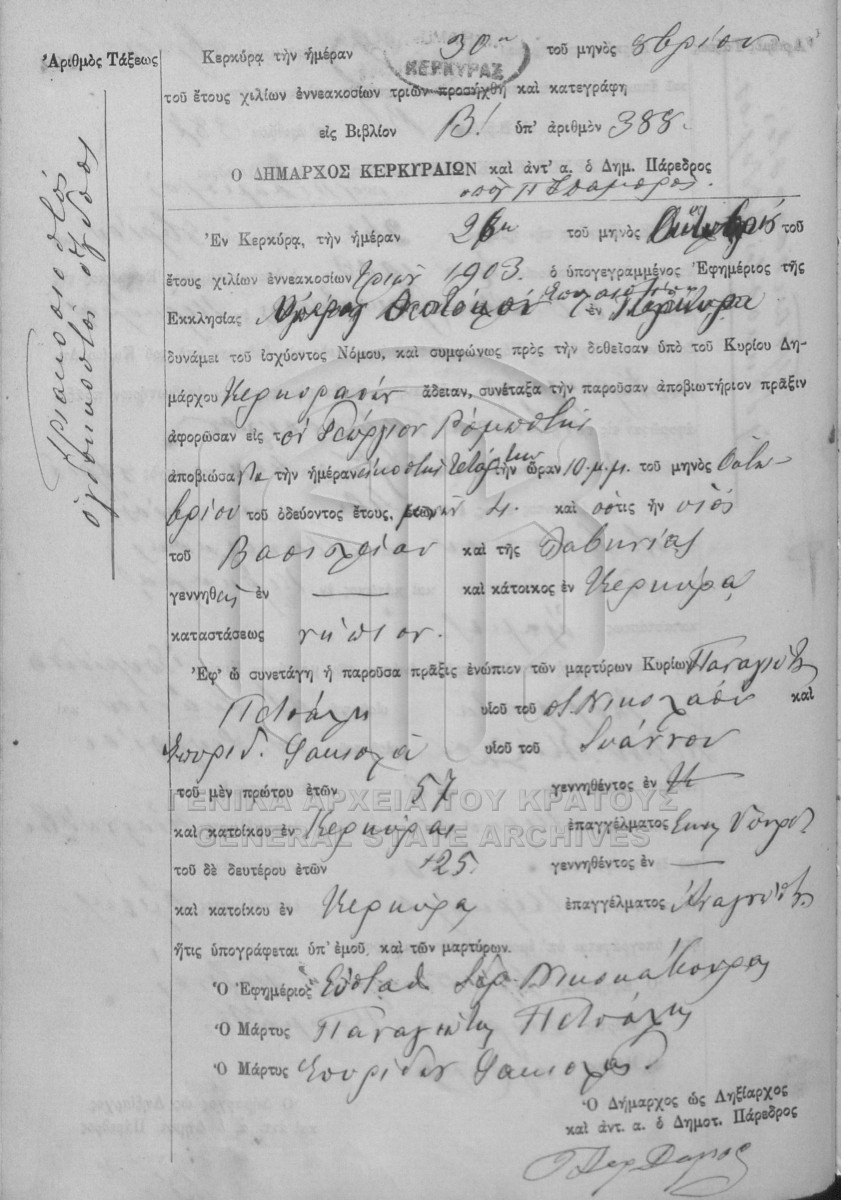 Ἀριθμὸς Τάξεως
Τριακοσιοστός
ὀγδοηκοστός ὄγδοος
Κερκύρᾳ τὴν ἡμέραν 30ην τοῦ μηνὸς 8βρίου
ΚΕΡΚΥΡΑΣ
τοῦ ἔτους χιλίων ἐννεακοσίων τριῶν προσήχθη καὶ κατεγράφη
εἰς Βιβλίον Β! ὑπ' ἀριθμὸν 388.
Ο ΔΗΜΑΡΧΟΣ ΚΕΡΚΥΡΑΙΩΝ καὶ ἀντ' α. ὁ Δημ. Πάρεδρος
Ἐν Κερκύρᾳ, τὴν ἡμέραν τοῦ μηνὸς τοῦ
ἔτους χιλίων ἐννεακοσίων τριῶν 1903. ὁ ὑπογεγραμμένος Ἐφημέριος τῆς
Εκκλησίας ἐν
δυνάμει τοῦ ἰσχύοντος Νόμου, καὶ συμφώνως πρὸς τὴν δοθεῖσαν ὑπὸ τοῦ Κυρίου Δη-
μάρχου Κερκυραίων ἄδειαν, συνέταξα τὴν παροῦσαν ἀποβιωτήριον πρᾶξιν
ἀφορῶσαν εἰς τὸν Γεώργιον
ἀποβιώσαντα τὴν ἡμέραν εἰκοστὴν τετάρτην τὴν ὥραν 10 μ.μ. τοῦ μηνὸς Ὀκτω-
βρίου τοῦ ὁδεύοντος ἔτους, μηνῶν 4. καὶ ὅστις ἦν υἱὸς
τοῦ Βασιλείου καὶ τῆς Λαβινίας
γεννηθεὶς ἐν — καὶ κάτοικος ἐν Κερκύρᾳ
καταστάσεως νήπιον.
Ἐφ' ᾧ συνετάγη ἡ παροῦσα πρᾶξις ἐνώπιον τῶν μαρτύρων Κυρίων Παναγιώτη
Πετσάλη υἱοῦ τοῦ Νικολάου καὶ
Σπυρίδ. Φακιολᾶ υἱοῦ τοῦ Ἰωάννου
τοῦ μὲν πρώτου ἐτῶν 57 γεννηθέντος ἐν
ΓΕΝΙΚΑ ΑΡΧΕΙΑ ΤΟΥ ΚΡΑΤΟΥΣ
καὶ κατοίκου ἐν Κερκύρᾳ ἐπαγγέλματος
GENERAL STATE ARCHIVES
τοῦ δὲ δευτέρου ἐτῶν 25. γεννηθέντος ἐν —
καὶ κατοίκου ἐν Κερκύρᾳ ἐπαγγέλματος Ἀναγνώστ.
ἥτις ὑπογράφεται ὑπ' ἐμοῦ, καὶ τῶν μαρτύρων.
Ὁ Ἐφημέριος Εὐστάθ
Ὁ Μάρτυς Παναγιώτης Πετσάλης
Ὁ Μάρτυς Σπυρίδων Φακιολᾶς
Ὁ Δήμαρχος ὡς Ληξίαρχος
καὶ ἀντ. α. ὁ Δημοτ. Πάρεδρος